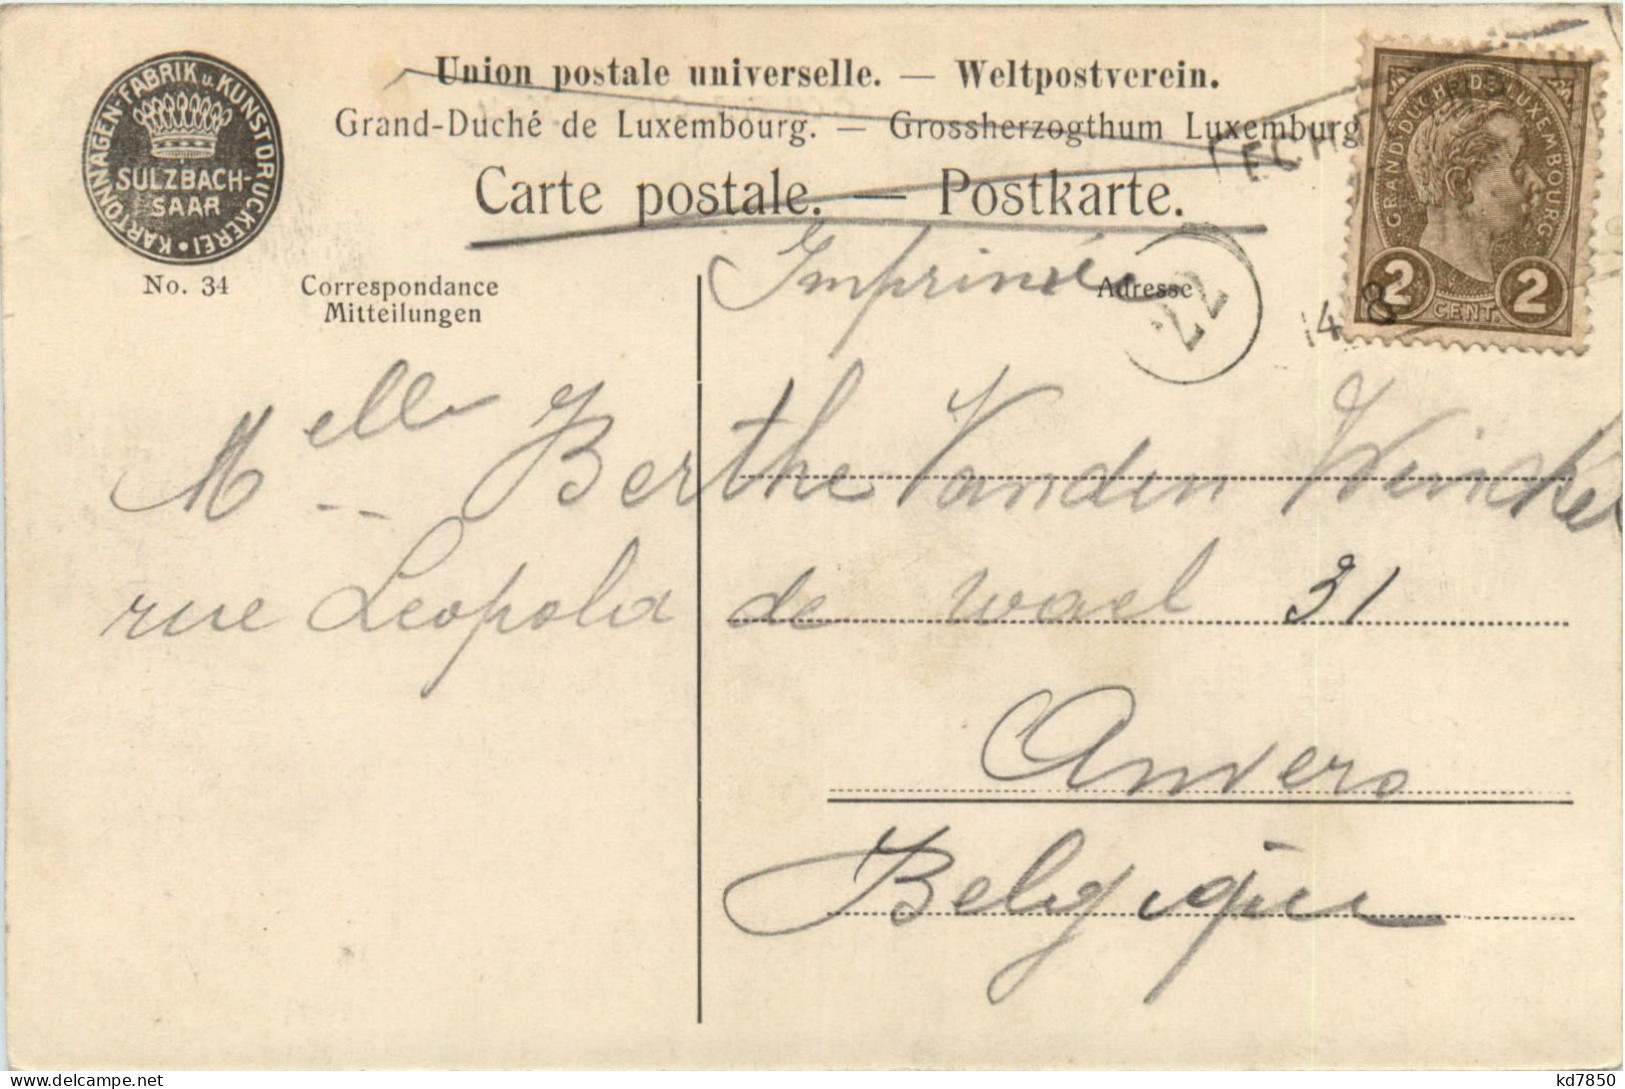 Union postale universelle. — Weltpostverein.
Grand-Duché de Luxembourg. — Grossherzogthum Luxemburg
Carte postale. — Postkarte.
KARTONNAGEN-FABRIK u. KUNSTDRUCKEREI
SULZBACH-
SAAR
No. 34
Correspondance
Mitteilungen
Imprimé
Adresse
22
ECH
14 8
GRAND-DUCHÉ DE LUXEMBOURG
2 CENT. 2
Melle Berthe Vanden Winckel
rue Leopold de wael 31
Anvers
Belgique
kd7850